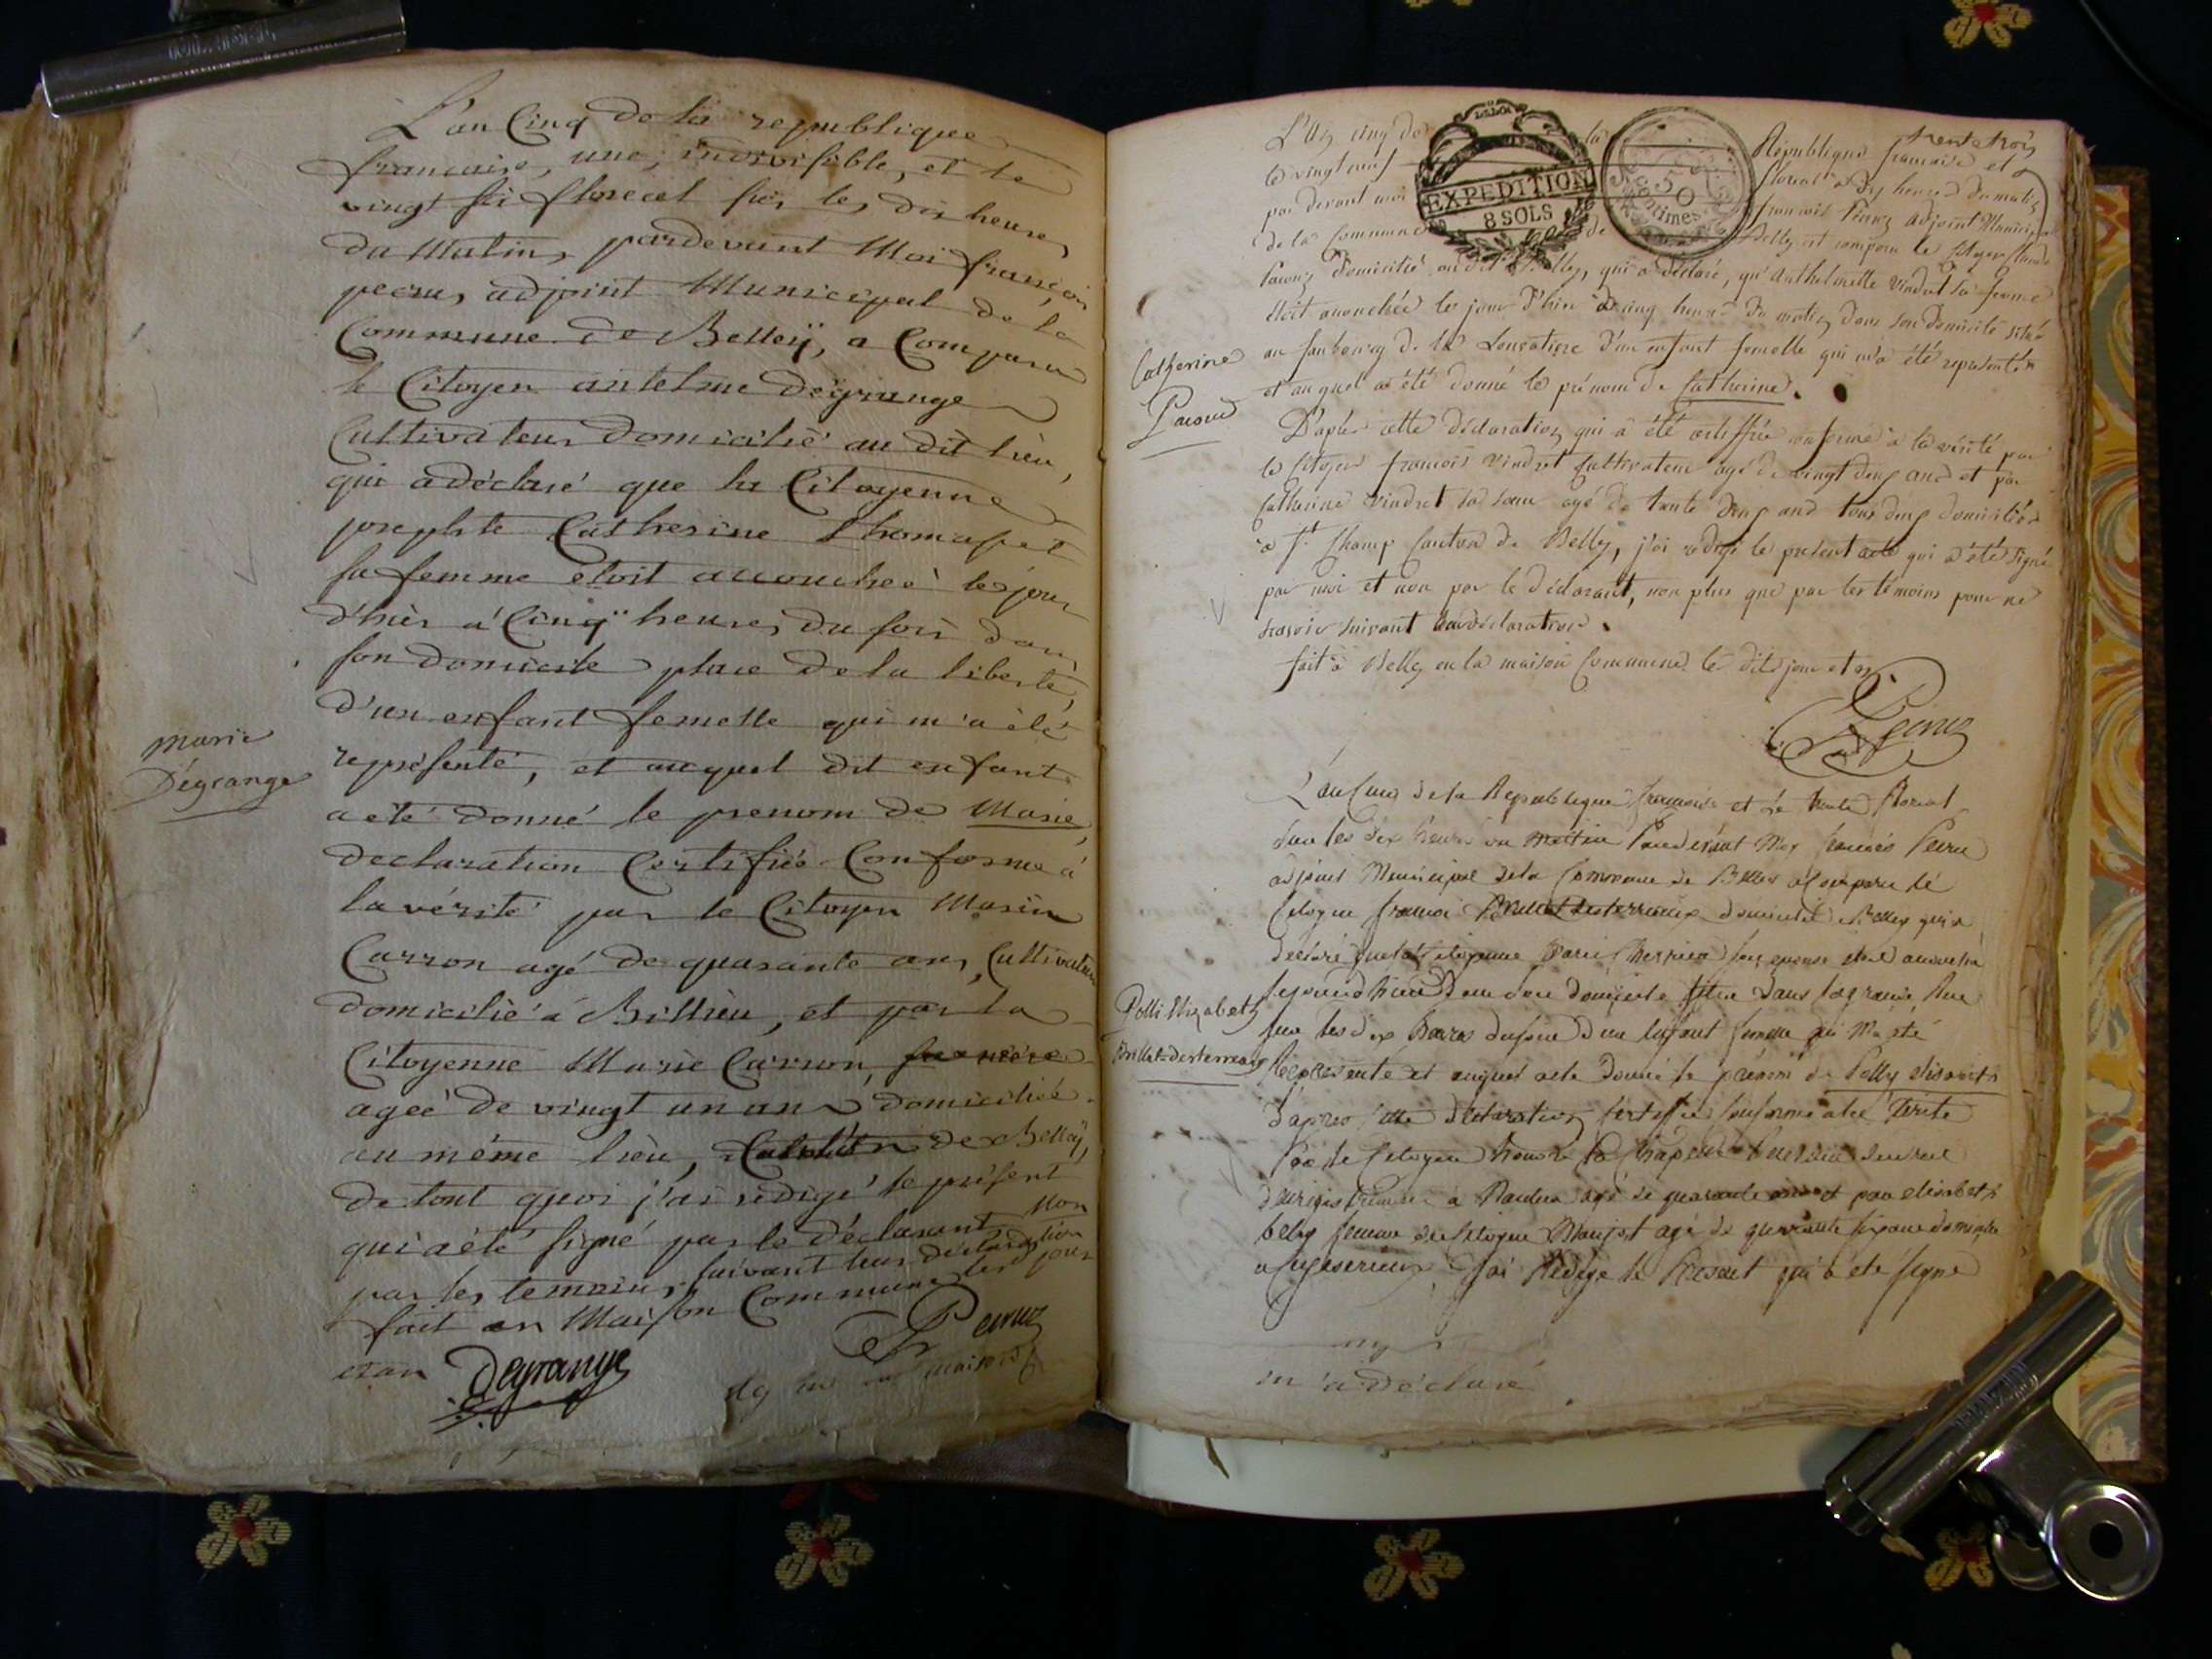 L'an Cinq de la republique
francaise, une, indivisible, et le
vingt six floreal sur les dix heures
du Matin, pardevant Moi françois
peeruz, adjoint Municipal de la
Commune de Belleÿ, a Comparu
le Citoyen antelme dégrange
Cultivateur domicilié au dit lieu,
qui a déclaré que la Citoyenne
josephte Catherine Thomasset
sa femme etoit accouchéé le jour
d'hier a Cinq heures du soir dans
son domicile place de la liberté,
d'un enfant femelle qui m'a été
représenté, et auquel dit enfant
a été donné le prenom de Marie,
declaration Certifiée Conforme à
la vérité par le Citoyen Marin
Carron agé de quarante ans, Cultivateur
domicilié a Billieu, et par la
Citoyenne Marie Carron,
ageé de vingt un ans domiciliée
au même lieu, de Belleÿ,
de tout quoi j'ai rédigé le présent
qui a été signé par le déclarant, Non
par les temoins, suivant leur déclaration
fait en Maison Commune les jour
et an Degrange
marie
Dégrange
trente trois
L'An cinq de la République francoise et
le vingt neuf floreal a dix heures du matin
par devant moi francois Peeruz adjoint Municipal
de la Commune de Belley est comparu le Citoyen
domicilié au dit Belley, qui a déclaré, qu'Anthelmette Vindret sa femme
étoit accouchée le jour d'hier à cinq heures du matin dans son domicile situé
au faubourg de la d'un enfant femelle qui m'a été representée
et auquel a été donné le prénom de Catherine.
EXPEDITION
8 SOLS
50
centimes
Catherine
D'après cette déclaration qui a été certiffiée conforme à la vérité par
le Citoyen francois Vindret Cultivateur agé de vingt deux ans et par
Catherine Vindret sa soeur agé de trente deux ans tous deux domiciliés
à St. Champ Canton de Belley, j'ai redigé le présent acte qui a été signé
par moi et non par le déclarant, non plus que par les témoins pour ne
scavoir suivant leur déclaration.
fait à Belley en la maison Commune les dits jour et an
L'an Cinq de la Republique francaise et le trente floreal
sur les dix heures du Mattin Pardevant Moy francois Peeru
adjoint Municipal de la Commune de Belley a Comparu le
Citoyen francoi Brillat desterreaux domicilié a Belley qui a
déclaré que la Citoyenne Marie son epouse etoit accouchée
dans son domicile situé dans la grande Rue
sur les dix heures du d'un enfant femelle qui M'a été
Représenté et auquel a été donné le prénom de Polly elisabeth
Polli Elizabeth
Brillat-desterreaux
d'apres cette déclaration certifiée conforme a la Vérité
par le Citoyen
a agé de quarante ans et par elisabeth
femme du Citoyen agé de quarante six ans domiciliée
J'ai Rédigé le Présent qui a été signé
m'a déclaré